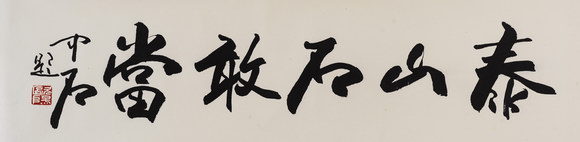 泰山石敢當
中石題